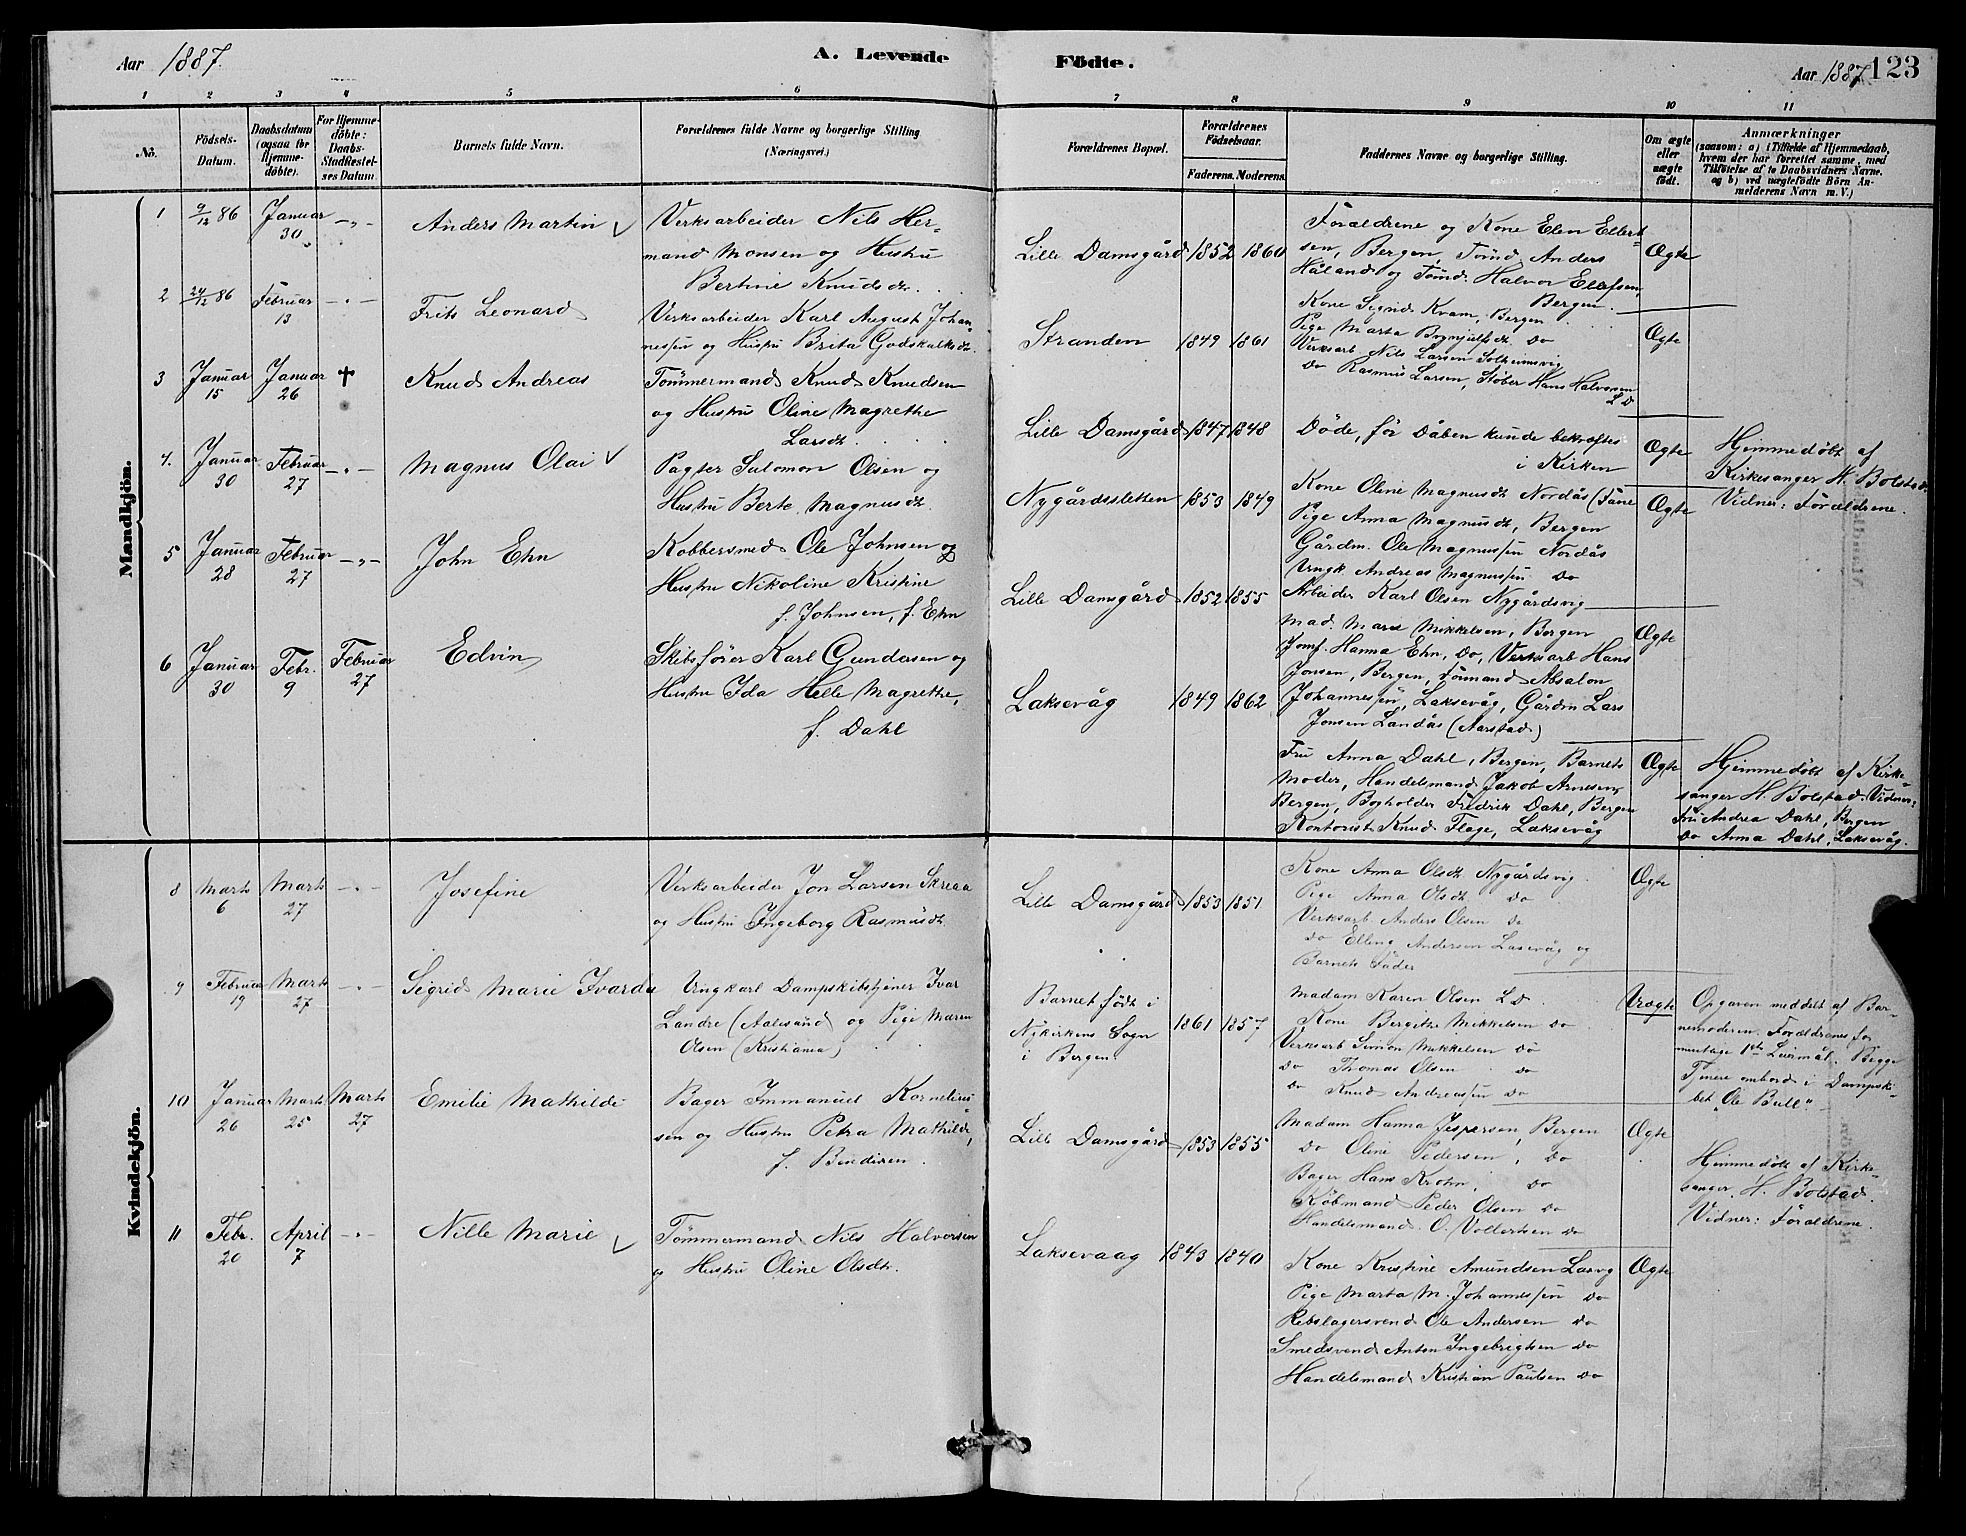 Aar 1887.
A. Levende
Födte.
Aar 1887
123
1 2 3 4 5 6 7 8 9 10 11
No.
Födsels-Datum.
Daabsdatum (ogsaa for Hjemme-döbte).
For Hjemme-döbte: Daabs-Stadfæstel-ses Datum.
Barnets fulde Navn.
Forældrenes fulde Navne og borgerlige Stilling.
(Næringsvei.)
Forældrenes Bopæl.
Forældrenes Födselsaar.
Faderens. Moderens.
Faddernes Navne og borgerlige Stilling.
Om ægte eller uægte födt.
Anmærkninger
(saasom: a) i Tilfælde af Hjemmedaab,
hvem der har forrettet samme, med
Tilföielse af to Daabsvidners Navne,
og b) ved uægtefödte Börn An-
melderens Navn m. V.)
Mandkjön.
1 9/12 86 Januar 30 -"- Anders Martin
Verksarbeider Nils Her-
mand Monsen og Hustru
Bertine Knudsdr.
Lille Damsgård 1852 1860
Forældrene og Kone Elen Ellert-
sen, Bergen, Tømd. Anders
Håland og Tømd. Halvor Ellefsen,
Bergen.
Ægte
2 24/12 86 Februar 13 -"- Frits Leonard
Verksarbeider Karl August Johan-
nessen og Hustru Brita Godskalksdr.
Stranden 1849 1861
Kone Signe Kvam, Bergen
Pige Marta Brynjulfsdr. Do
Verksarb Nils Larsen Solheimsvig
Do Rasmus Larsen, Støber Hans Halvorsen
L D
Ægte
3 Januar 15 Januar 26 † Knud Andreas
Tømmermand Knud Knudsen
og Hustru Oline Magrethe
Larsdr.
Lille Damsgård 1847 1848
Døde, før Dåben kunde bekræftes
i Kirken
Ægte
Hjemmedøbt af
Kirkesanger H. Bolstad.
Vidner: Forældrene.
4. Januar 30 Februar 27 -"- Magnus Olai
Pagter Salomon Olsen og
Hustru Berte Magnusdr.
Nygårdssletten 1853 1849
Kone Oline Magnusdr Nordås (Fane
Pige Anna Magnusdr, Bergen
Gårdm. Ole Magnussen Nordås
Ungk Andreas Magnussen Do
Arbeider Karl Olsen Nygårdsvig
Ægte
5 Januar 28 Februar 27 -"- John Ehn
Kobbersmed Ole Johnsen og
Hustru Nikoline Kristine
f. Johnsen, f. Ehn
Lille Damsgård 1852 1855
Mad. Marie Mikkelsen, Bergen
Jomf. Hanna Ehn, Do, Verksarb Hans
Jonsen, Bergen, Formand Absalon
Johannessen, Laksevåg, Gårdm Lars
Jonsen Landås (Aarstad)
Ægte
6 Januar 30 Febr. 9 Februar 27 Edvin
Skibsfører Karl Gundersen og
Hustru Ida Helle Magrethe,
f. Dahl
Laksevåg 1849 1862
Fru Anna Dahl, Bergen, Barnets
Moder, Handelsmand Jakob Arnesen,
Bergen, Bogholder Fredrik Dahl, Bergen
Kontorist Knud Flage, Laksevåg
Ægte
Hjemmedøbt af Kirke-
sanger H. Bolstad. Vidner:
Fru Andrea Dahl, Bergen
Do Anna Dahl, Laksevåg.
Kvindekjön.
8 Marts 6 Marts 27 -"- Josefine
Verksarbeider Jon Larsen Skreaa
og Hustru Ingeborg Rasmusdr.
Lille Damsgård 1853 1851
Kone Anna Olsdr Nygårdsvig
Pige Anna Olsdr Do
Verksarb. Anders Olsen Do
Do Elling Andersen Laxevåg og
Barnets Fader
Ægte
9 Februar 19 Marts 27 -"- Sigrid Marie Ivarda
Ungkarl Dampskibstjener Ivar
Landre (Aalesund) og Pige Maren
Olsen (Kristiania)
Barnet født i
Nykirkens Sogn
i Bergen.
1861 1857
Madam Karen Olsen L D
Kone Bergithe Mikkelsen Do
Verksarb Simon Mikkelsen Do
Do Thomas Olsen Do
Do Knud Andreassen Do
Uægte
Opgaven meddelt af Bar-
nemoderen. Forældrenes for-
mentage 1ste Leiermål. Begge
Tjenere ombord i Dampski-
bet "Ole Bull".
10 Januar 26 Marts 25 Marts 27 Emilie Mathilde
Bager Immanuel Kornelius-
sen og Hustru Petra Mathilde,
f. Bendixen.
Lille Damsgård 1853 1855
Madam Hanna Jespersen, Bergen
Do Oline Pedersen, Do
Bager Hans Krohn, Do
Købmand Peder Olsen Do
Handelsmand O. Vollertsen Do
Ægte
Hjemmedøbt af Kirke-
sanger H. Bolstad.
Vidner: Forældrene.
11 Febr. 20 April 7 -"- Nille Marie
Tømmermand Nils Halvorsen
og Hustru Oline Olsdr.
Laksevaag 1843 1840
Kone Kristine Amundsen Laxvg
Pige Marta M. Johannessen Do
Rebslagersvend Ole Andersen Do
Smedsvend Anton Ingebrigtsen Do
Handelsmand Kristian Paulsen Do
Ægte